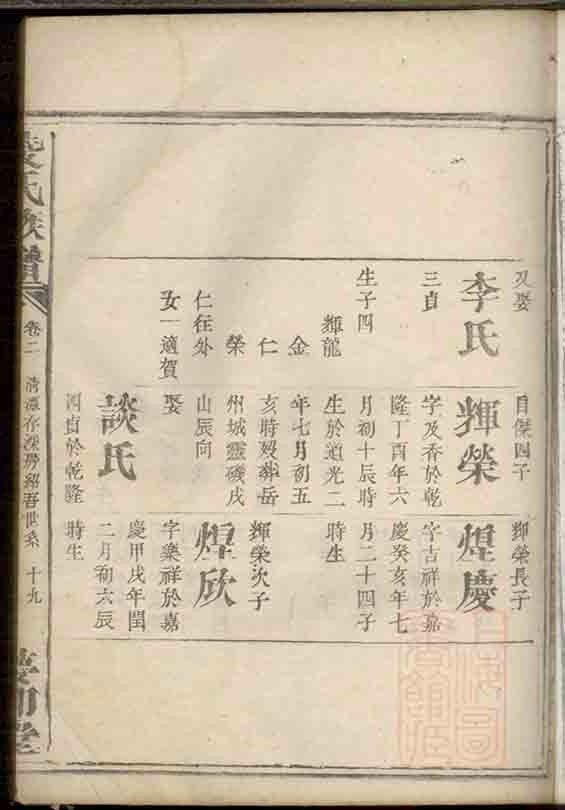 又娶
李氏
三貞
生子四
輝龍
金
仁
榮
仁往外
女一適賀
自傑四子
輝榮
字及香於乾
隆丁酉年六
月初十辰時
生於道光二
年七月初五
亥時歿葬岳
州城靈磯戌
山辰向
娶
談氏
四貞於乾隆
輝榮長子
煌慶
字吉祥於嘉
慶癸亥年七
月二十四子
時生
輝榮次子
煌欣
字樂祥於嘉
慶甲戌年閏
二月初六辰
時生
氏族譜
卷二
清潭存深房紹吾世系
十九